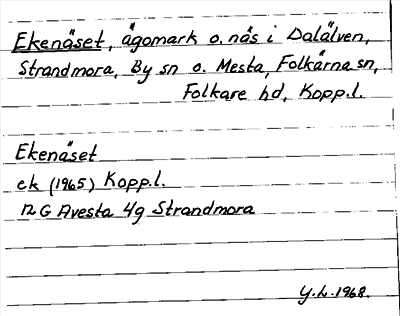 Ekenäset, ägomark o. näs i Dalälven,
Strandmora, By sn o. Mesta, Folkärna sn,
Folkare hd, Kopp.l.
Ekenäset
ek (1965) Kopp.l.
12 G Avesta 4g Strandmora
Y.L. 1968.